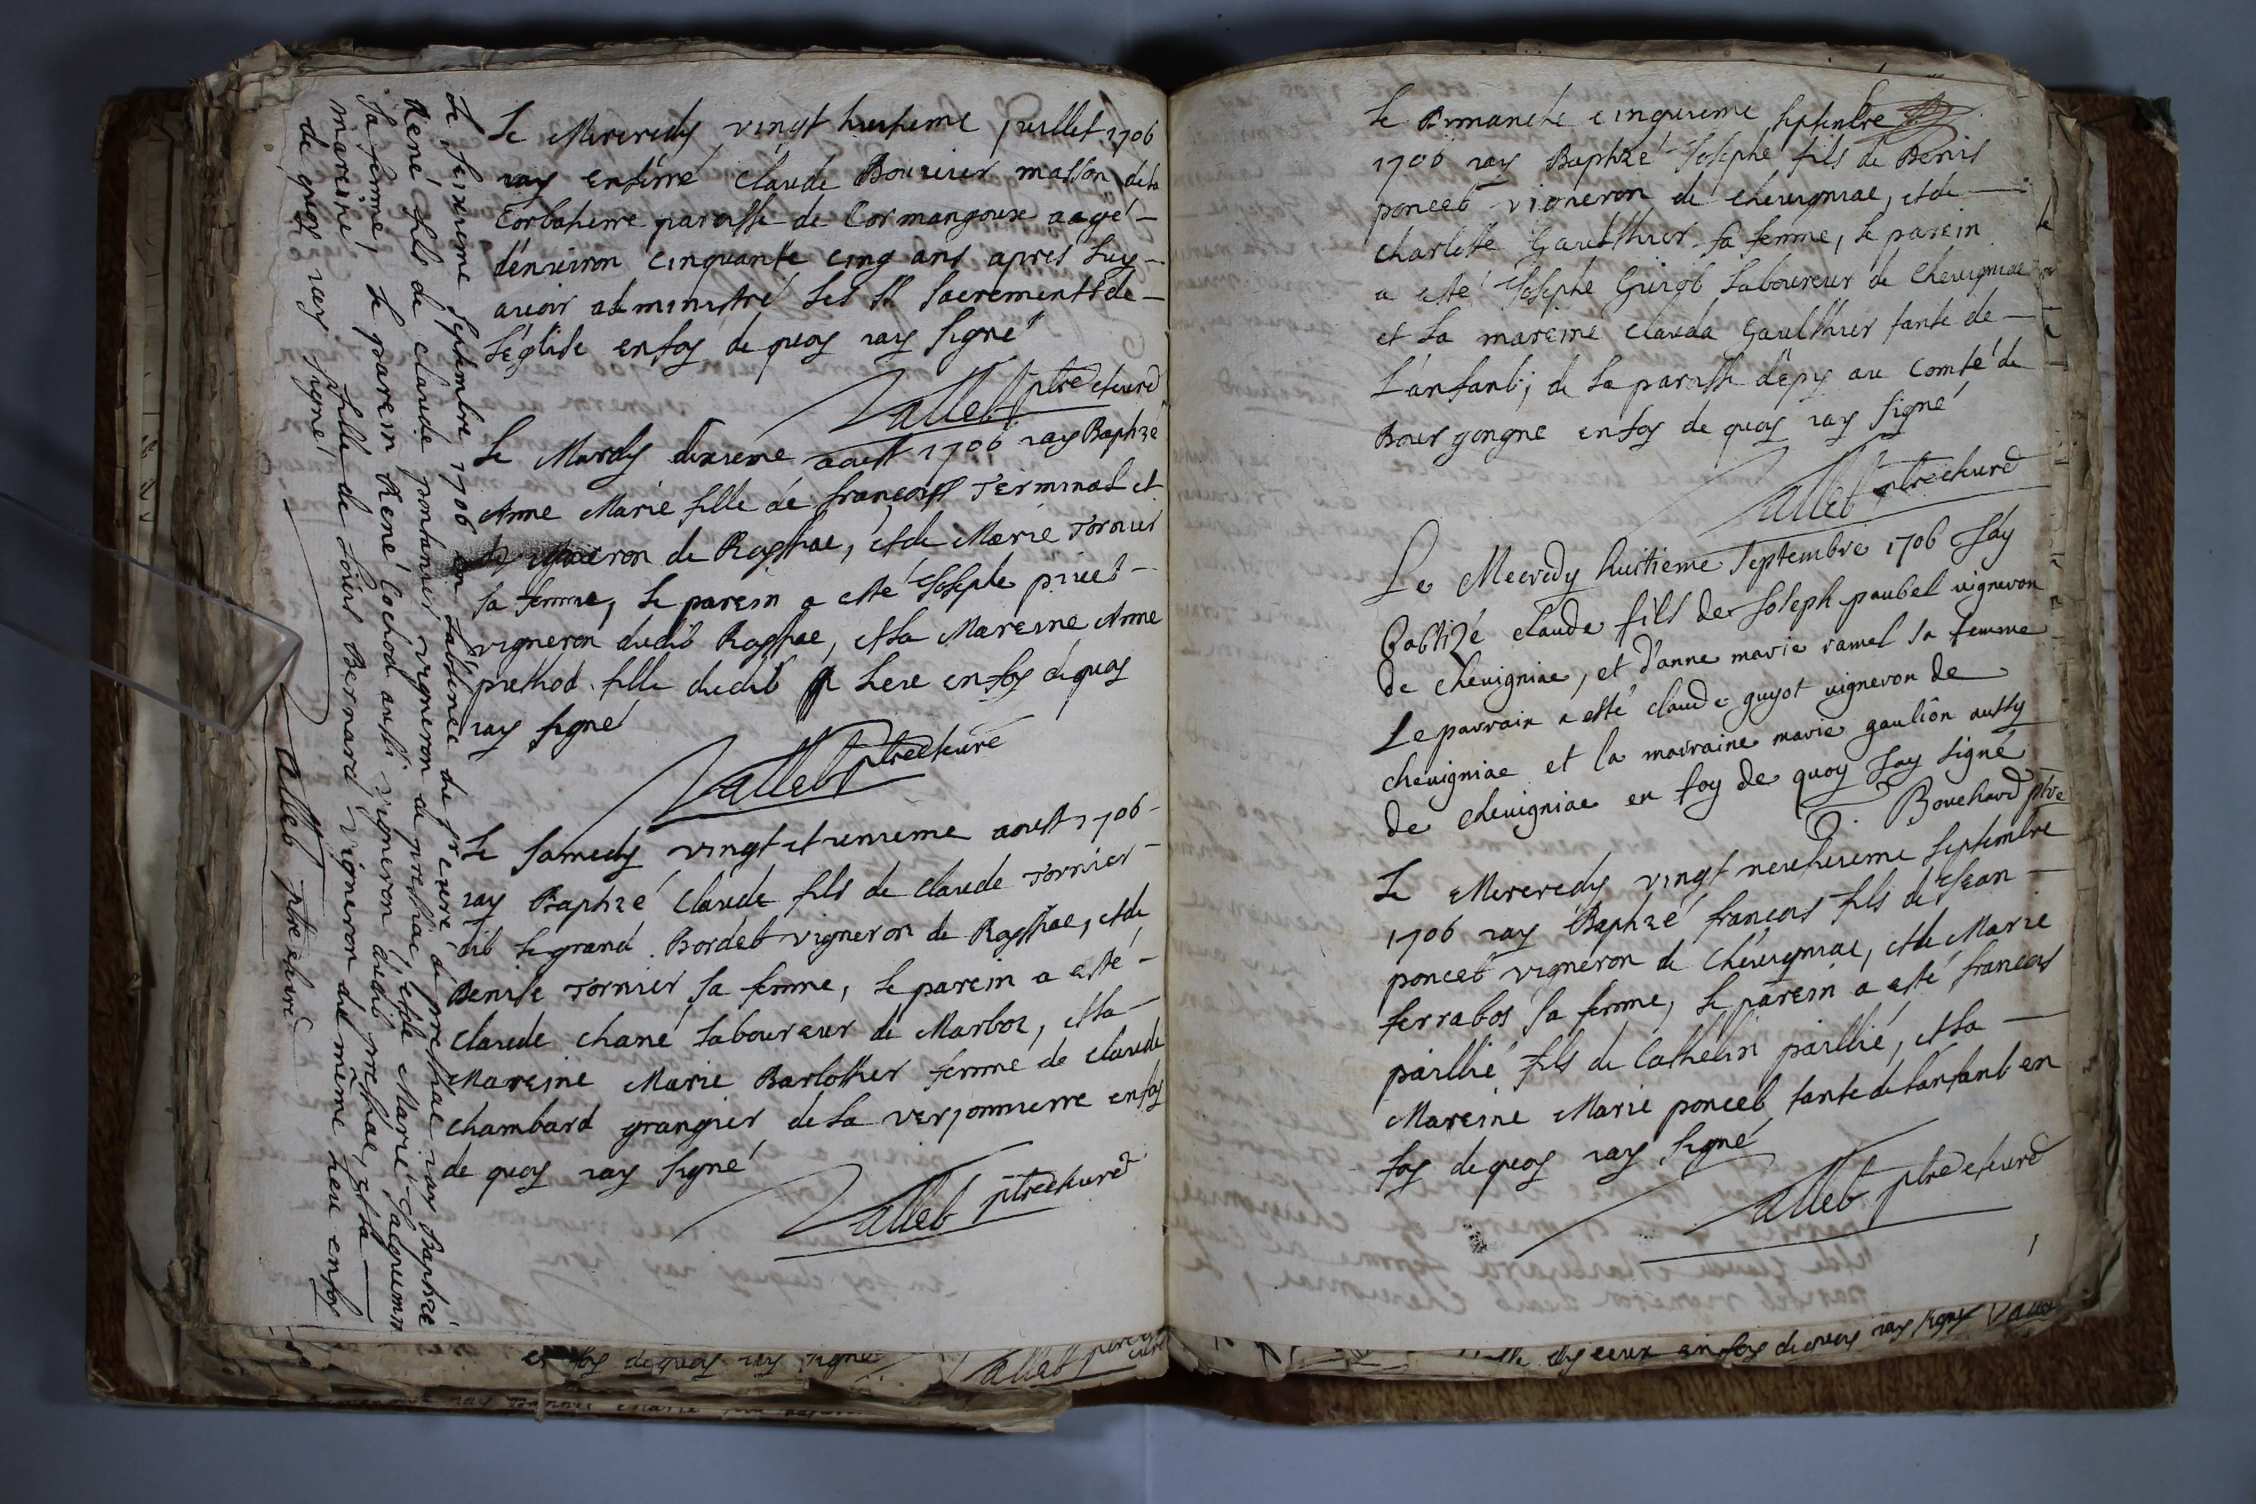 Le Mercredy vingt huitieme juillet 1706
iay enterré Claude Bouvier masson de la
Corbatiere paroisse de Cormangoux aagé
d'enuiron cinquante cinq ans apres luy
auoir administré les SS Sacrements de
l'église en foy de quoy iay signé
Vallet ptre et curé
Le Mardy dixieme aoust 1706 iay Baptizé
Anne Marie fille de françois Terminal et
vigneron de Rosstiae, et de Marie Tornier
sa femme, le parein a esté Joseph
vigneron dudit Rosstiae, et la Mareine Anne
prethod fille dudit lieu en foy de quoy
iay signé
Vallet ptre et curé
Le Samedy vingt et unieme aoust 1706
iay Baptizé Claude fils de Claude Tornier
dit le grand Bordet vigneron de Rosstiae, et de
Denise Tornier sa femme, le parein a esté
Claude Chané laboureur de Marboz, et la
Mareine Marie Barlothier femme de Claude
Chambard grangier de la verjonnierre en foy
de quoy iay signé
Vallet ptre et curé
Le seixieme septembre 1706 en l'absence du sr curé de pressiae iay Baptizé
René fils de Claude pontanier vigneron de pressiae, et de Marie Jacquemin
sa femme, le parein René Cochod aussi vigneron dudit pressiae, et la
mareine fille de Louis Bernard vigneron du même lieu en foy
de quoy iay signé
Vallet ptre et curé
en foy de quoy iay signé Vallet ptre et curé
Le Dimanche cinquieme septembre
1706 iay Baptizé Joseph fils de Denis
poncet vigneron de cheuigniae, et de
Charlotte Gaulthier sa femme, le parein
a esté Joseph Guigot laboureur de Cheuigniae
et la mareine Clauda Gaulthier tante de
l'anfant; de la paroisse d'épy au Comté de
Bourgongne en foy de quoy iay signé
Vallet ptre et curé
Le Mecredy huitieme Septembre 1706 J'ay
babtizé claude fils de Joseph paubel vigneron
de cheuigniae, et d'anne marie ramel sa femme
Le parrain a esté claude guyot vigneron de
cheuigniae et la marraine marie gaulion aussy
de cheuigniae en foy de quoy J'ay signé
Bouchard ptre
Le Mercredy vingt neufuieme septembre
1706 iay Baptizé françois fils de Jean
poncet vigneron de Cheuigniae, et de Marie
ferrabos sa femme, le parein a esté françois
paillié fils de Cathelin paillié, et la
Mareine Marie poncet tante de l'anfant en
foy de quoy iay signé
Vallet ptre et curé
en foy de quoy iay signé